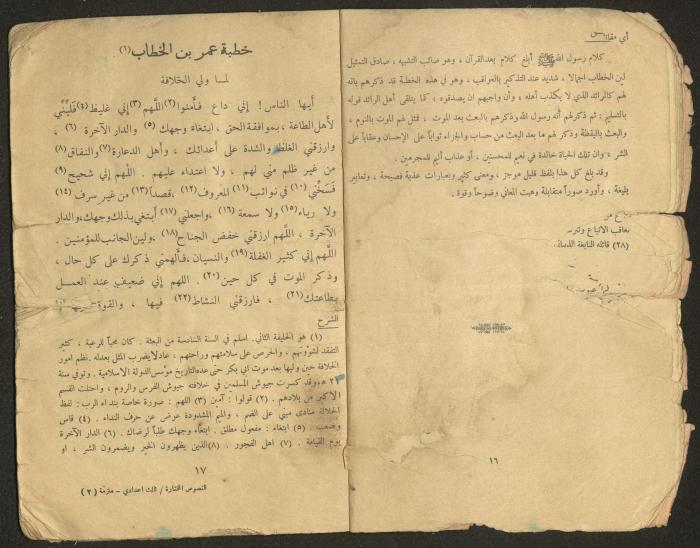 أي مقاييس
كلام رسول الله ﷺ أبلغ كلام بعد القرآن ، وهو صائب التشبيه ، صادق التمثيل
لين الخطاب اجمالا ، شديد عند التذكير بالعواقب ، وهو في هذه الخطبة قد ذكرهم بانه
لهم كالرائد الذي لا يكذب أهله ، وأن واجبهم ان يصدقوه ، كما يتلقى أهل الرائد قوله
بالتسليم : ثم ذكرهم أنه رسول الله وذكرهم بالبعث بعد الموت ، فمثل لهم الموت بالنوم ،
والبعث باليقظة وذكر لهم ما بعد البعث من حساب والجزاء ثواباً على الإحسان وعقاباً على
الشر ، وان تلك الحياة خالدة في نعيم للمحسنين ، أو عذاب أليم للمجرمين .
وقد بلغ كل هذا بلفظ قليل موجز ، ومعنى كثير وبعبارات عذبة فصيحة ، وتعابير
بليغة ، وأورد صوراً متقابلة وهبت المعاني وضوحاً وقوة .
من
يعاقب الاتباع
(٢٨) قائله النابغة
١٦
خطبة عمر بن الخطاب (١)
لما ولي الخلافة
أيها الناس! إني داع فأمنوا(٢)اللهم(٣)إني غليظ(٤)فليّنّي
لأهل الطاعة ، بموافقة الحق ، ابتغاء وجهك (٥) والدار الآخرة (٦) ،
وارزقني الغلظ والشدة على أعدائك ، وأهل الدعارة (٧) والنفاق (٨)
من غير ظلم مني لهم ، ولا اعتداء عليهم . اللهم إني شحيح (٩)
فسخّني (١٠) في نوائب (١١) المعروف (١٢) ، قصداً (١٣) من غير سرف (١٤)
ولا رياء(١٥) ولا سمعة (١٦) ، واجعلني (١٧) أبتغي بذلك وجهك، والدار
الآخرة ، اللهم ارزقني خفض الجناح(١٨) ، ولين الجانب للمؤمنين .
اللهم إني كثير الغفلة(١٩) والنسيان، فألهمني ذكرك على كل حال ،
وذكر الموت في كل حين (٢٠) . اللهم إني ضعيف عند العمل
بطاعتك (٢١) ، فارزقني النشاط (٢٢) فيها ، والقوة
الشرح
(١) هو الخليفة الثاني. اسلم في السنة السادسة من البعثة . كان محباً للرعية ، كثير
التفقد لشؤونهم ، والحرص على سلامتهم وراحتهم ، عادلا يضرب المثل بعدله . نظم امور
الخلافة حين وليها بعد موت ابي بكر حتى عده التاريخ مؤسس الدولة الاسلامية . وتوفي سنة
٢٣ هـ وقد كسرت جيوش المسلمين في خلافته جيوش الفرس والروم ، واحتلت القسم
الأكبر من بلادهم . (٢) قولوا : آمين (٣) اللهم : صورة خاصة بنداء الرب : لفظ
الجلالة منادى مبني على الضم ، والميم المشدودة عوض عن حرف النداء . (٤) قاس
وصعب . (٥) ابتغاء : مفعول مطلق . ابتغاء وجهك طلباً لرضاك . (٦) الدار الآخرة
يوم القيامة . (٧) اهل الفجور . (٨)الذين يظهرون الخير ويضمرون الشر ، او
١٧
النصوص المختارة / ثالث اعدادي - ملزمة (٢)